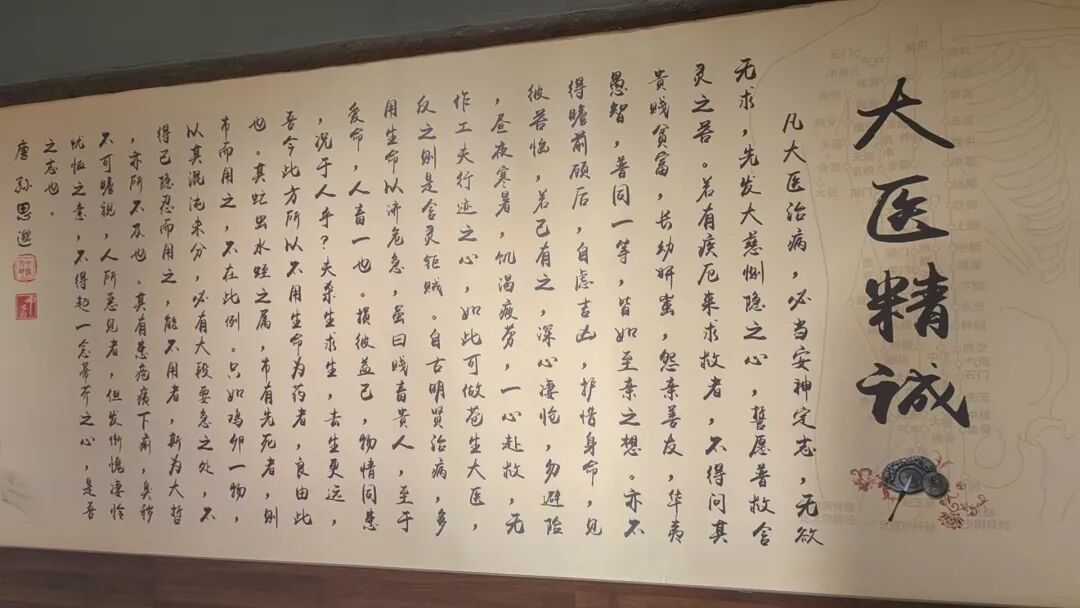 大医精诚
凡大医治病，必当安神定志，无欲
无求，先发大慈恻隐之心，誓愿普救含
灵之苦。若有疾厄来求救者，不得问其
贵贱贫富，长幼妍蚩，怨亲善友，华夷
愚智，普同一等，皆如至亲之想。亦不
得瞻前顾后，自虑吉凶，护惜身命，见
彼苦恼，若己有之，深心凄怆，勿避险
，昼夜寒暑，饥渴疲劳，一心赴救，无
作工夫行迹之心，如此可做苍生大医，
反之则是含灵钜贼。自古明贤治病，多
用生命以济危急，虽曰贱畜贵人，至于
爱命，人畜一也。损彼益己，物情同患
，况于人乎？夫杀生求生，去生更远，
吾今此方所以不用生命为药者，良由此
也。其虻虫水蛭之属，市有先死者，则
市而用之，不在此例。只如鸡卵一物，
以其混沌未分，必有大段要急之处，不
得已隐忍而用之，能不用者，斯为大哲
，亦所不及也。其有患疮痍下痢，臭秽
不可瞻视，人所恶见者，但发惭愧凄怜
忧恤之意，不得起一念蒂芥之心，是吾
之志也。
唐 孙思邈